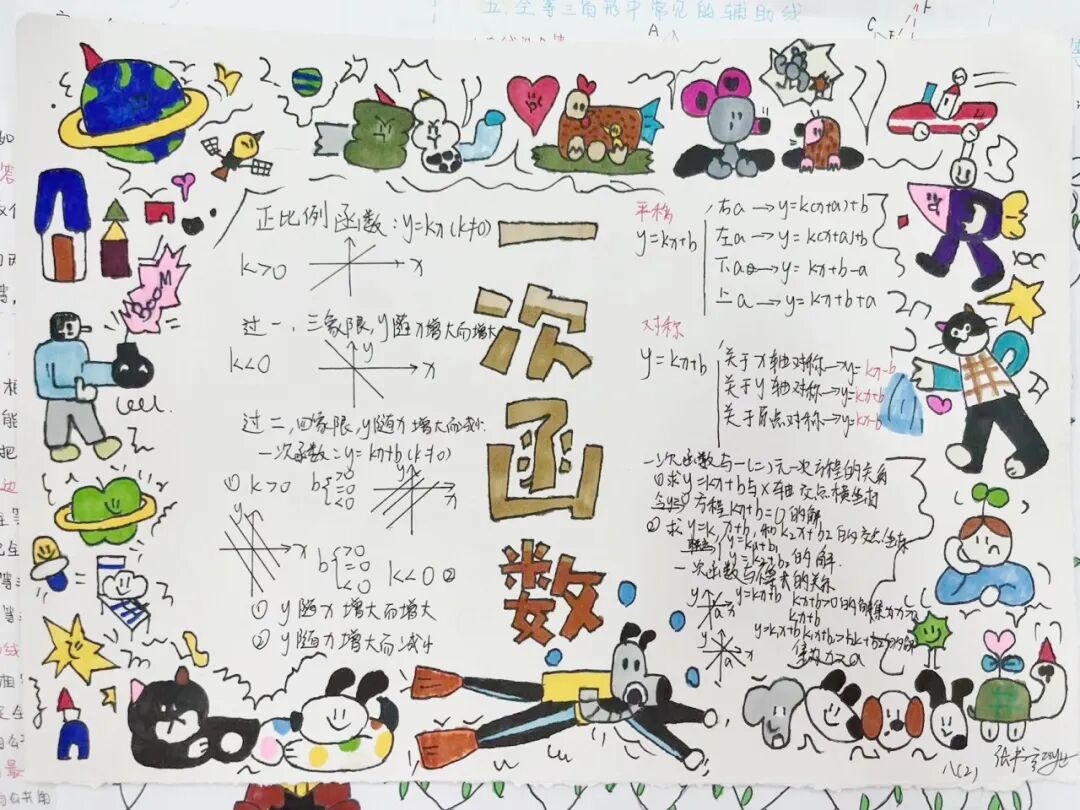 五.全等三角形中常见的辅助线
正比例函数:y=kx(k≠0)
k>0
x
过一,三象限,y随x增大而增大
k<0
y
x
过二,四象限,y随x增大而减小
一次函数:y=kx+b(k≠0)
① k>0 b{>0 =0 <0
x
b{>0 =0 <0 k<0 ②
① y随x增大而增大
② y随x增大而减小
BOOM
一次函数
平移
y=kx+b
右a→y=k(x+a)+b
左a→y=k(x+a)+b
下a→y=kx+b-a
上a→y=kx+b+a
对称
y=kx+b
关于x轴对称→y=kx-b
关于y轴对称→y=kx+b
关于原点对称→y=kx-b
一次函数与一(二)元一次方程的关系
①求y=kx+b与x轴交点横坐标
方程kx+b=0的解
②求y=k1x+b1和k2x+b2的交点坐标
y=k1x+b1
y=k2x+b2的解.
一次函数与不等式的关系
y=kx+b
kx+b>0的解集为x>a
y=kx+b
x>a
八(2)